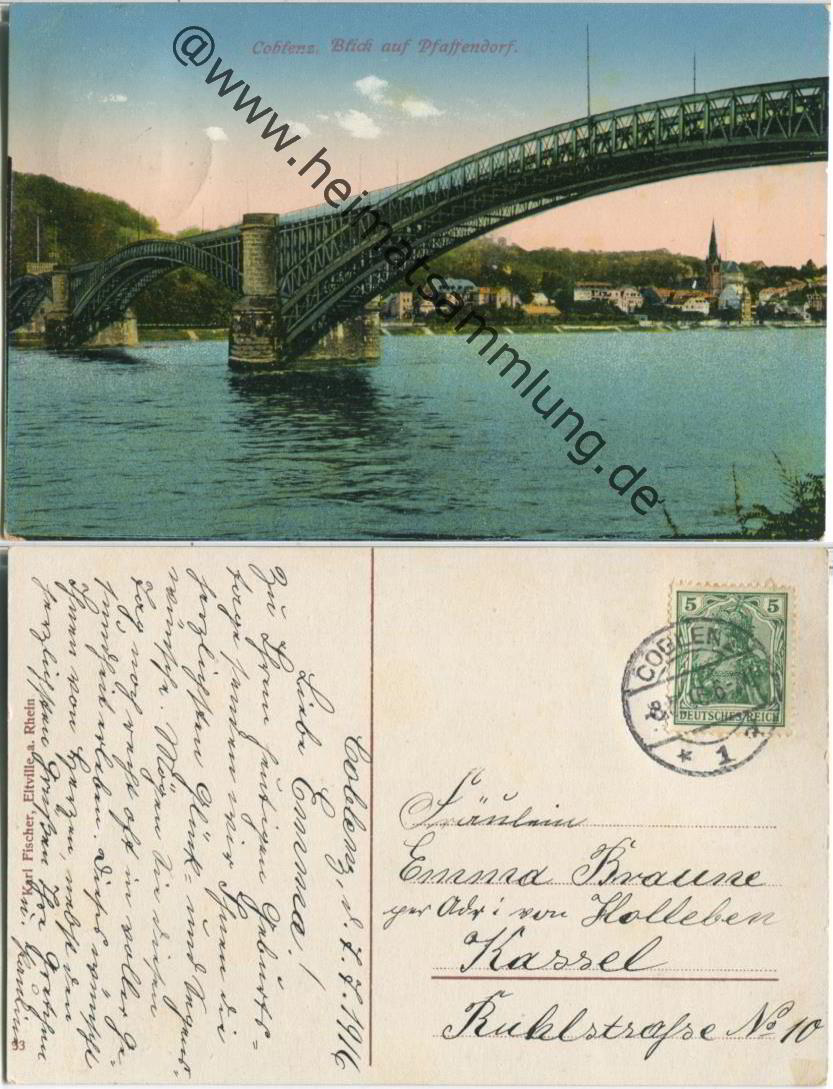 Coblenz. Blick auf Pfaffendorf.
@www.heimatsammlung.de
Coblenz, d. 7. 7. 1916
Liebe Emma!
Zu Ihrem heutigen Geburts=
tage senden wir Ihnen die
herzlichsten Glück- und Segens-
wünsche. Mögen Sie diesen
Tag noch recht oft in voller Ge-
sundheit erleben. Dieses wünscht
Ihnen von Herzen, nebst den
herzlichsten Grüßen
Karl Fischer, Eltville a. Rhein
33
5 5
DEUTSCHES REICH
COBLENZ
* 1
Fräulein
Emma Braune
per Adr: von Holleben
Kassel
Ruhlstraße No 10